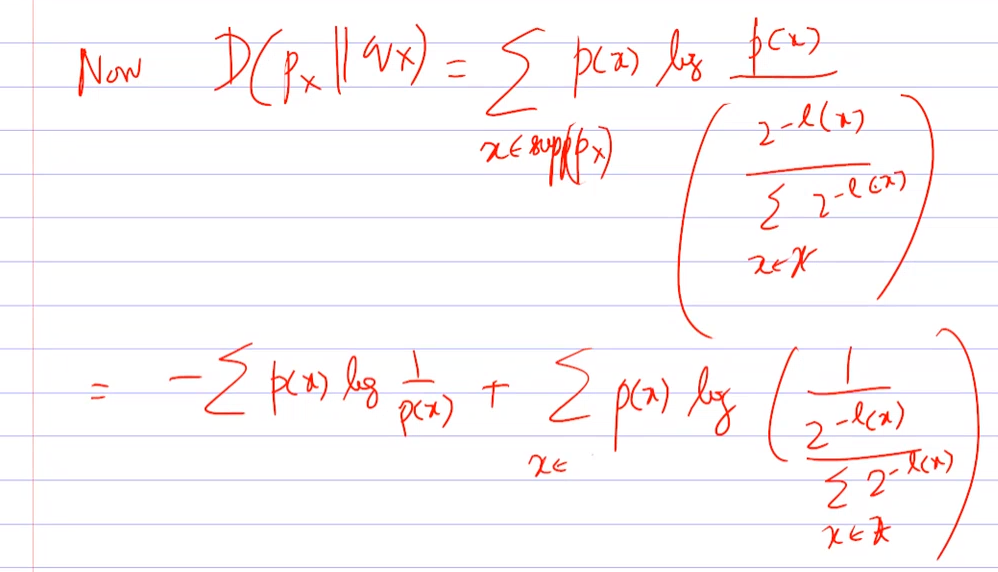 Now D(p_X || q_X) = ∑_{x ∈ supp(p_X)} p(x) log p(x) / ( 2^{-l(x)} / ∑_{x ∈ 𝒳} 2^{-l(x)} )
= - ∑ p(x) log 1/p(x) + ∑_{x ∈} p(x) log ( 1 / ( 2^{-l(x)} / ∑_{x ∈ 𝒳} 2^{-l(x)} ) )